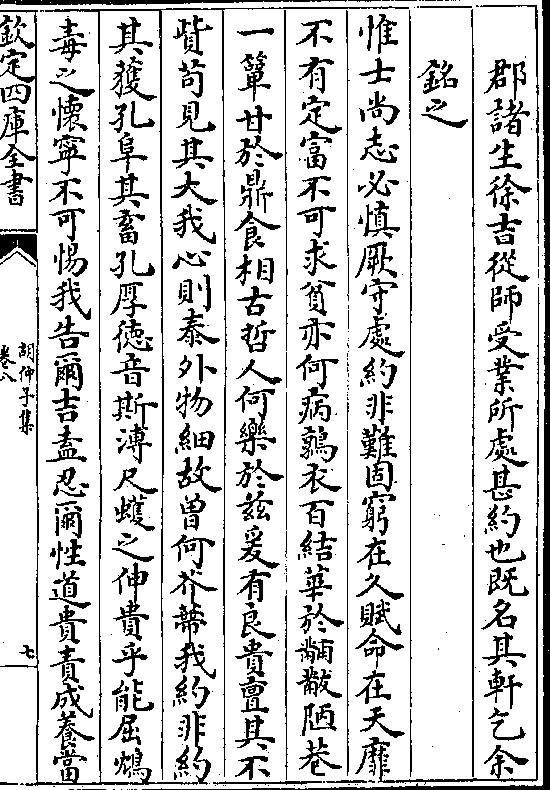 郡諸生徐吉從師受業所處甚約也既名其軒乞余
銘之
惟士尚志必慎厥守處約非難固窮在久賦命在天靡
不有定富不可求貧亦何病鶉衣百結華於黼黻陋巷
一簞甘於鼎食相古哲人何樂於兹爰有良貴亶其不
貲苟見其大我心則泰外物細故曽何芥蔕我約非約
其獲孔阜其畜孔厚徳音斯溥尺蠖之伸貴乎能屈鴆
毒之懷寧不可惕我告爾吉盍忍爾性道貴責成養當
欽定四庫全書
胡仲子集
卷八
七